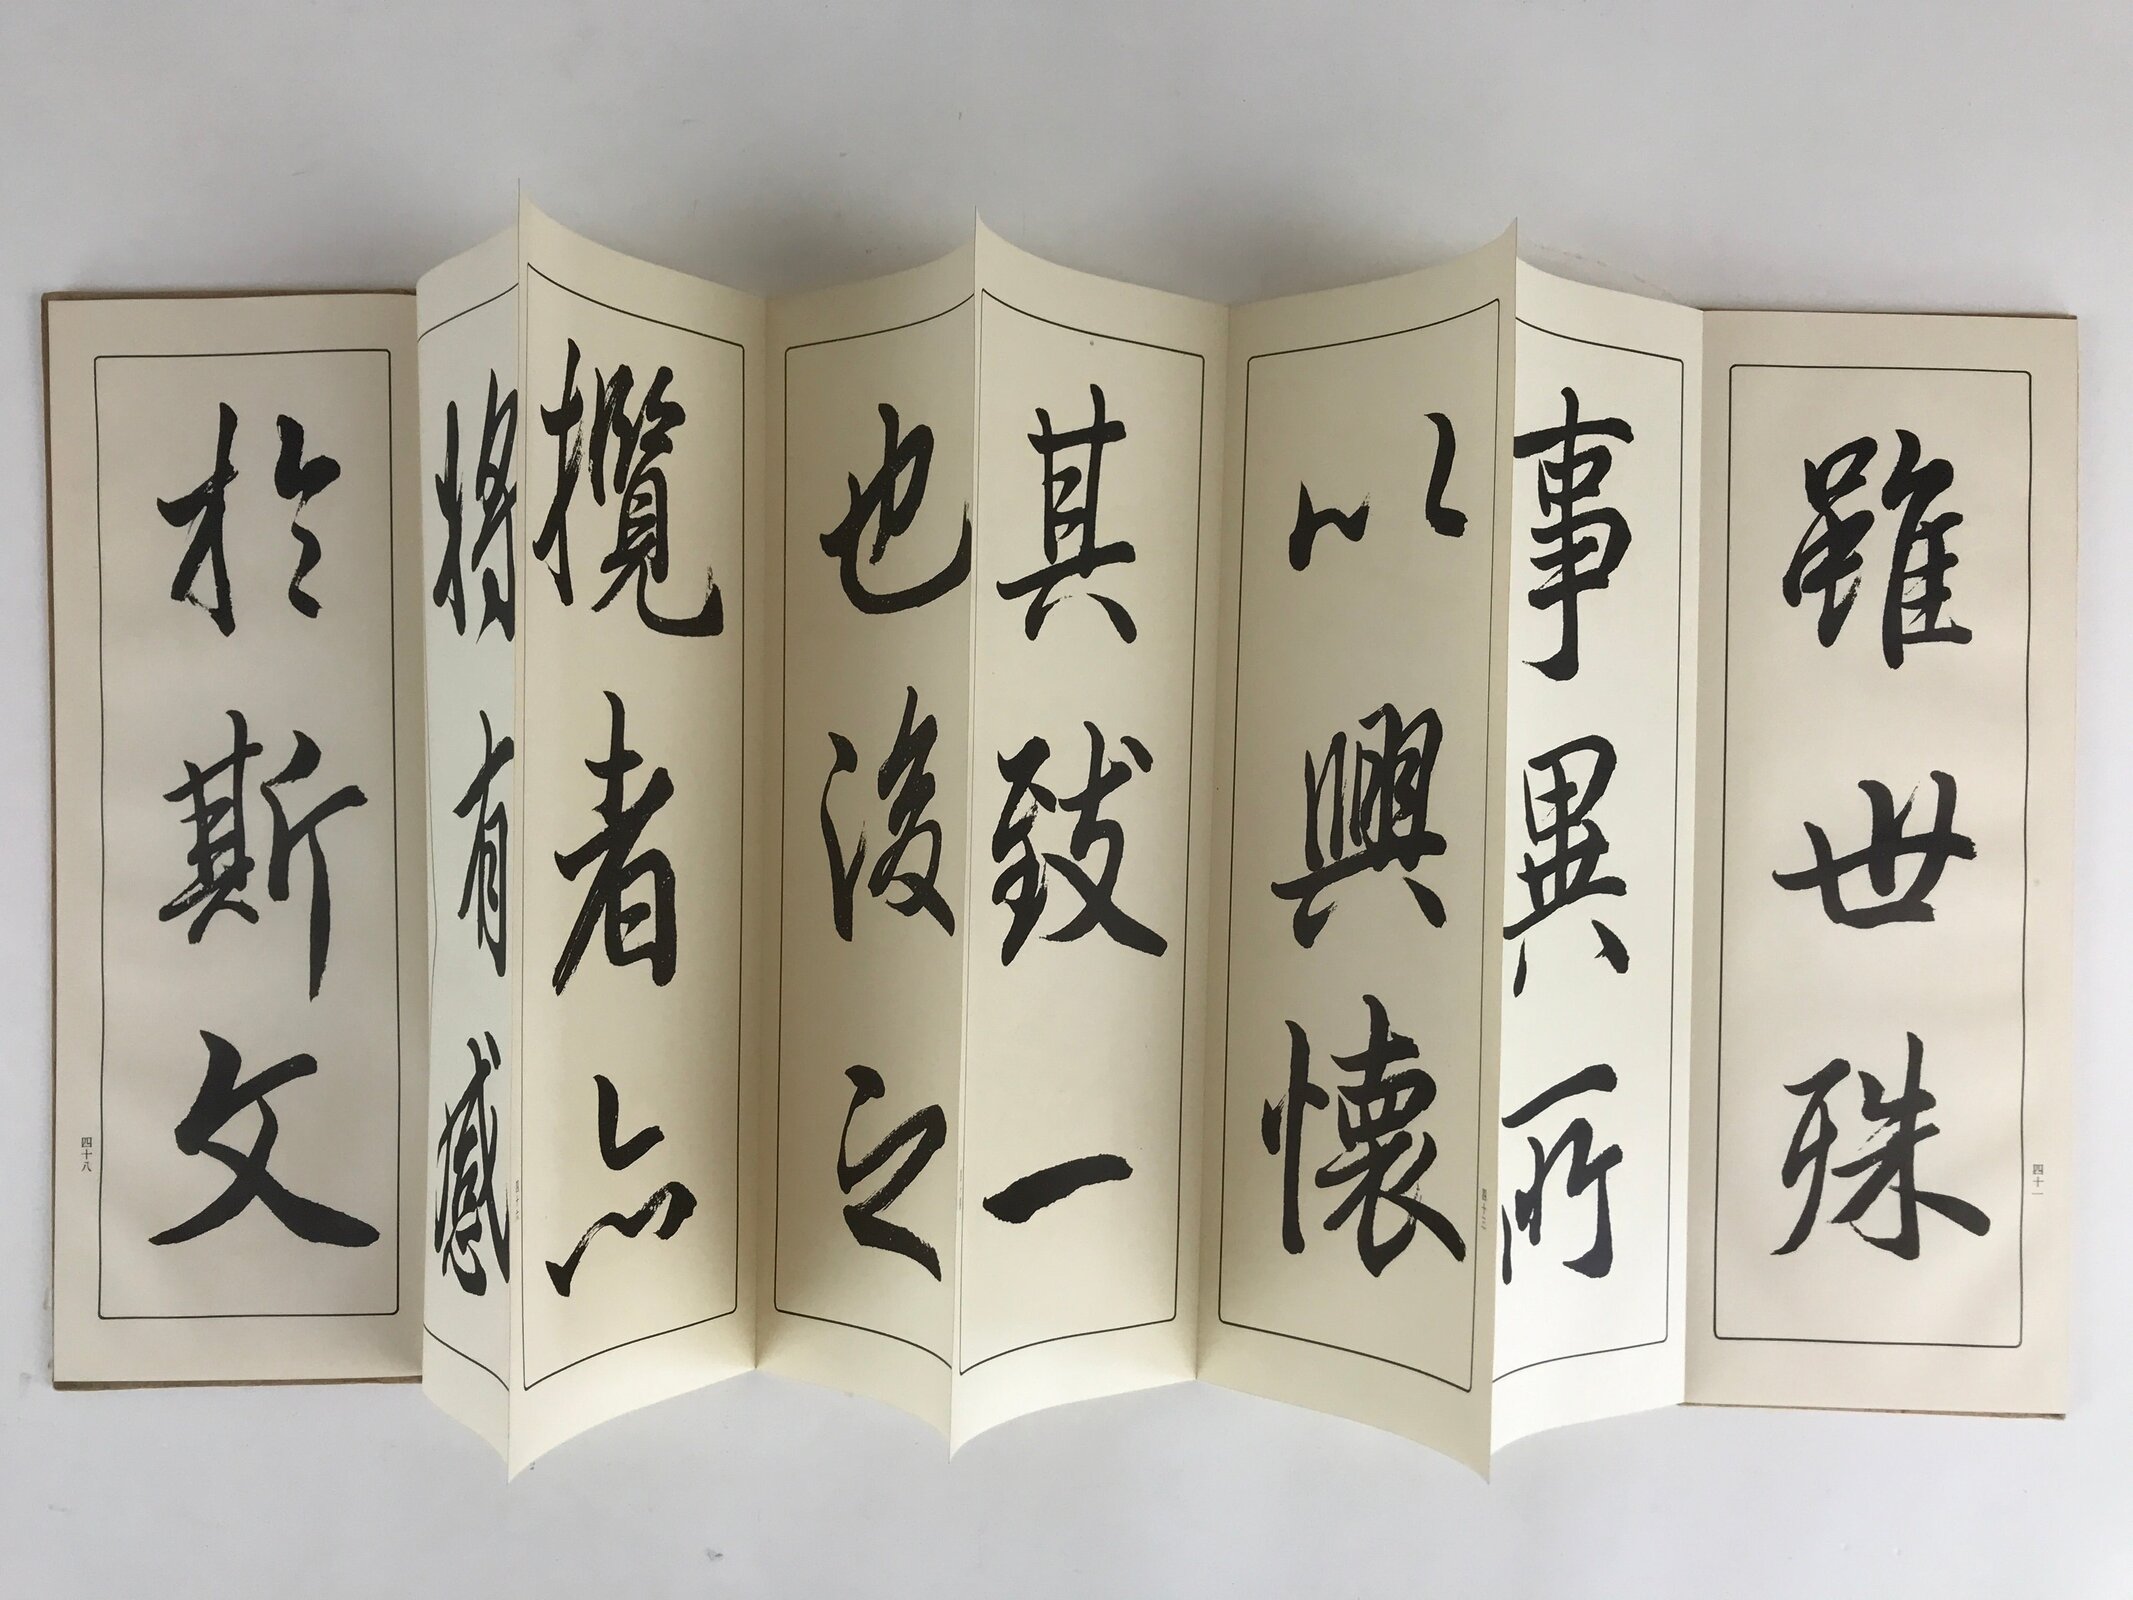 雖世殊
四十一
事異所
以興懷
其致一
也後之
攬者亦
將有感
於斯文
四十八